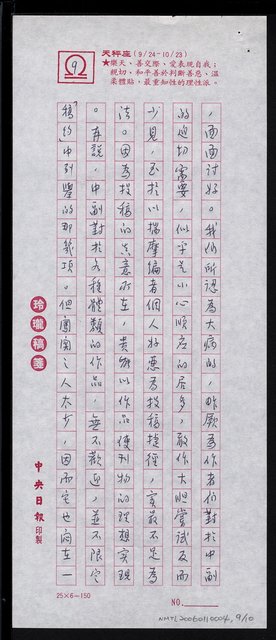 9
天秤座(9/24-10/23)
★樂天、善交際、愛表現自我；
親切、和平善於判斷善惡、溫
柔體貼，最重知性的理性派。
，面面討好。我們所認為大病的，厥為作者們對於中副
的迫切需要，似乎是小心順應的居多，敢作大胆嘗試反而
少見，至於以揣摩編者個人好惡為投稿捷徑，實最不足為
法。因為投稿的真意所在，貴能以作品使刊物的理想實現
。再說，中副對於各種體類的作品，無不歡迎，並不限定
「稿約」中列舉的那幾項。但闖關之人太少，因而它也在一
玲瓏稿箋
中央日報印製
25×6=150
NO.
NMTL20060110004, 9/10